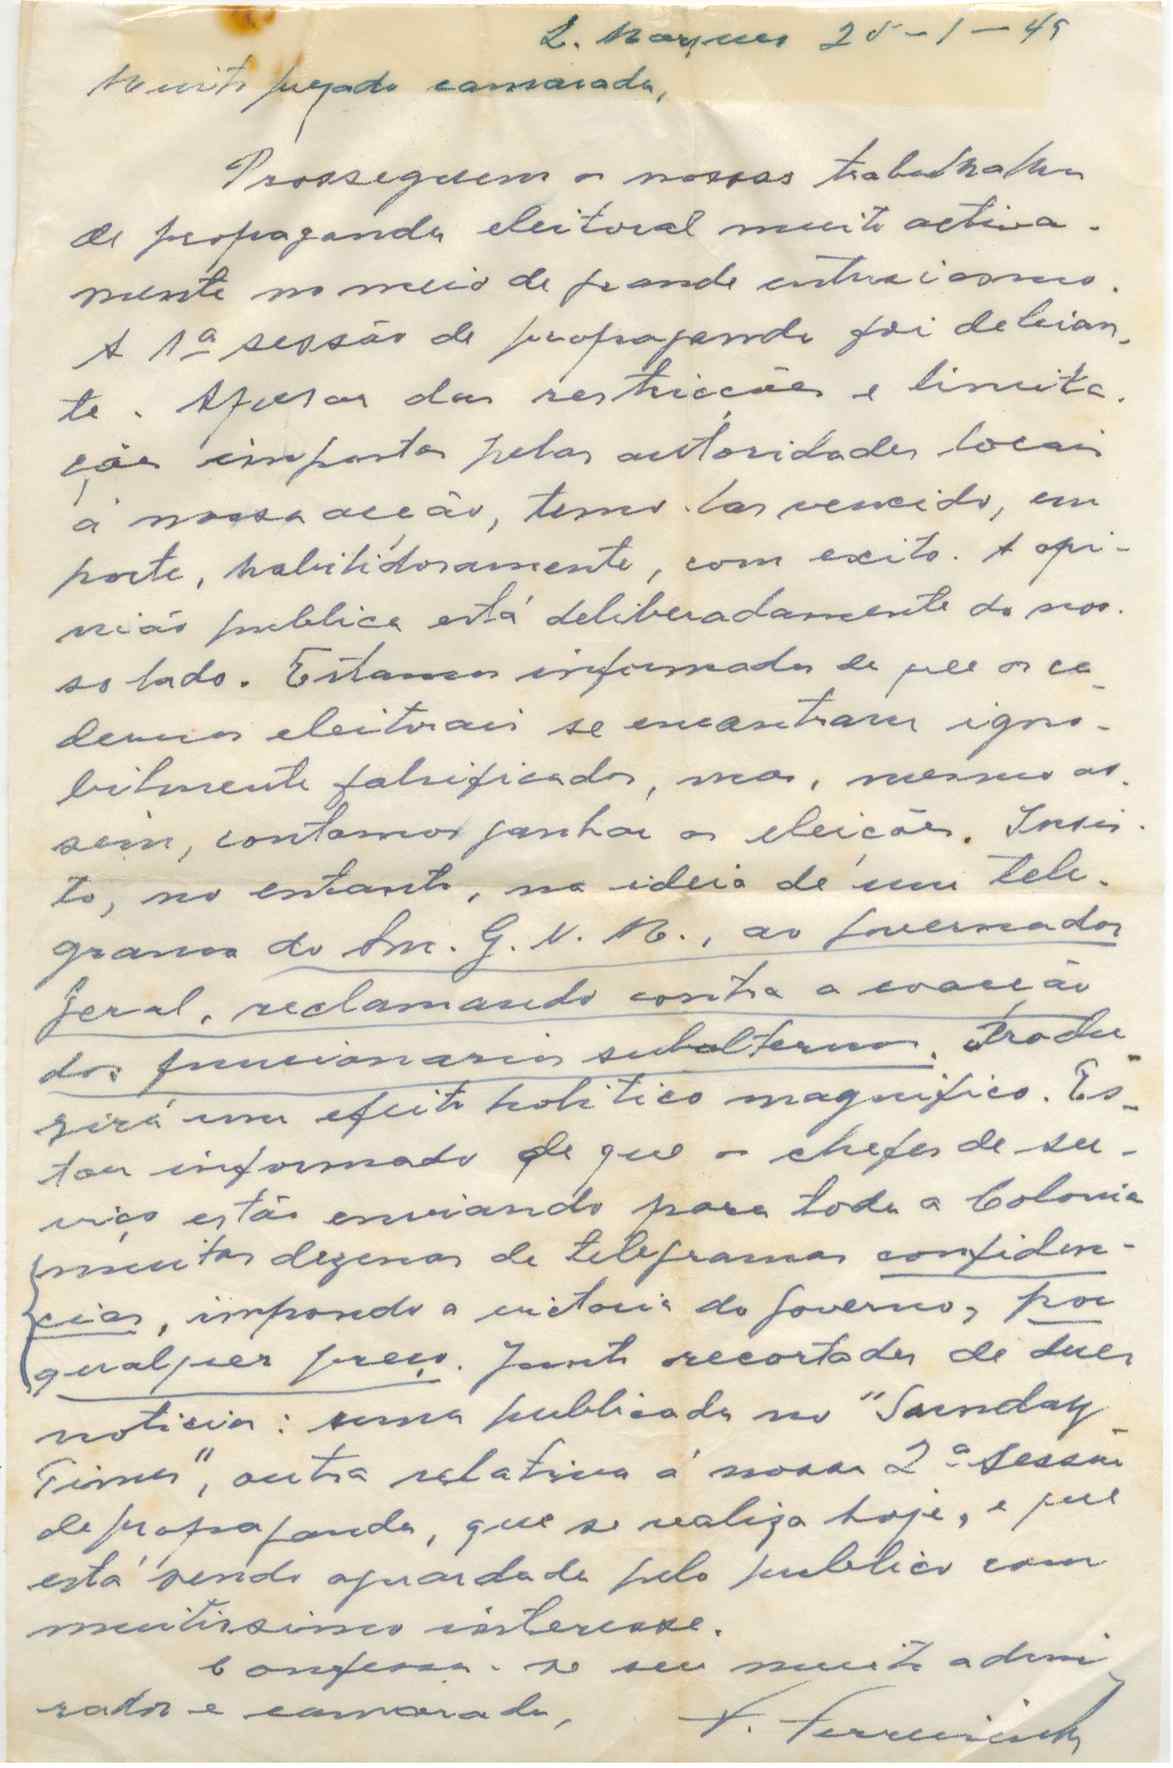 L. Marques 25-1-49
Muito prezado camarada,
Prosseguem os nossos trabalhos
de propaganda eleitoral muito activa-
mente no meio de grande entusiasmo.
A 1ª sessão de propaganda foi delirian-
te. Apesar das restricções e limita-
ções impostas pelas autoridades locais
á nossa acção, temo-las vencido, em
parte, habilidosamente, com exito. A opi-
nião publica está deliberadamente do nos-
so lado. Estamos informados de que os ca-
dernos eleitorais se encontram igno-
bilmente falsificados, mas, mesmo as-
sim, contamos ganhar as eleições. Insis-
to, no entanto, na ideia de um tele-
grama do Snr. G. N. M., ao Governador
Geral, reclamando contra a coacção
dos funcionarios subalternos. Produ
zirá um efeito politico magnifico. Es-
tou informado de que os chefes de ser-
viço estão enviando para toda a Colonia
muitas dezenas de telegramas confiden-
ciais, impondo a victoria do Governo, por
qualquer preço. Junto recortes de duas
noticias: uma publicada no "Sunday
Times", outra relativa á nossa 2ª sessão
de propaganda, que se realiza hoje, e que
está sendo aguardada pelo publico com
muitissimo interesse.
Confessa-se seu muito admi
rador e camarada,